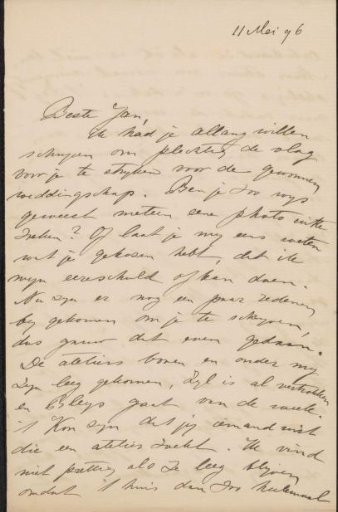 11 Mei 96
Beste Jan,
Ik had je allang willen
schrijven om plechtig de vlag
voor je te strijken voor de gewonnen
weddingschap. Ben je zoo wys
geweest meteen eene photo in te
Of laat je my eens weten
wat je gekozen hebt, dat ik
myn eereschuld af kan doen.
Nu zyn er nog een paar redenen
by gekomen om je te schryven,
dus gauw dat even gedaan.
De ateliers boven en onder my
zyn leeg gekomen, Zyl is al vertrokken
en gaat van de week.
't Kon zyn dat jy iemand wist
die een atelier zocht. Ik vind
niet prettig als ze leeg blyven
omdat 't huis dan zoo heelemaal